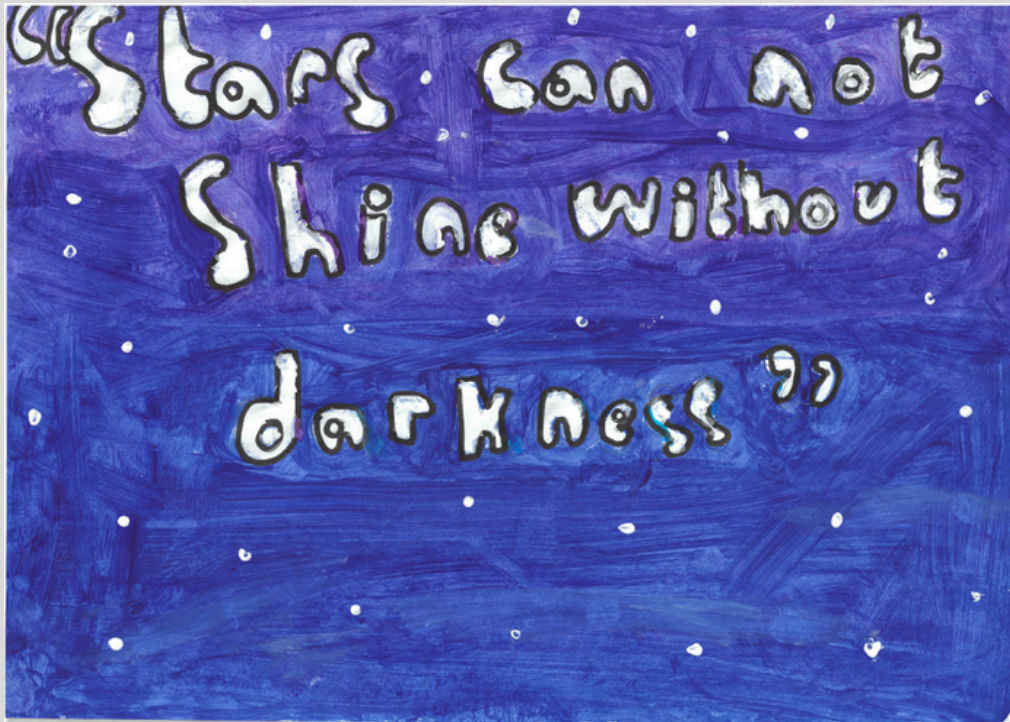 “Stars can not
Shine without
darkness”